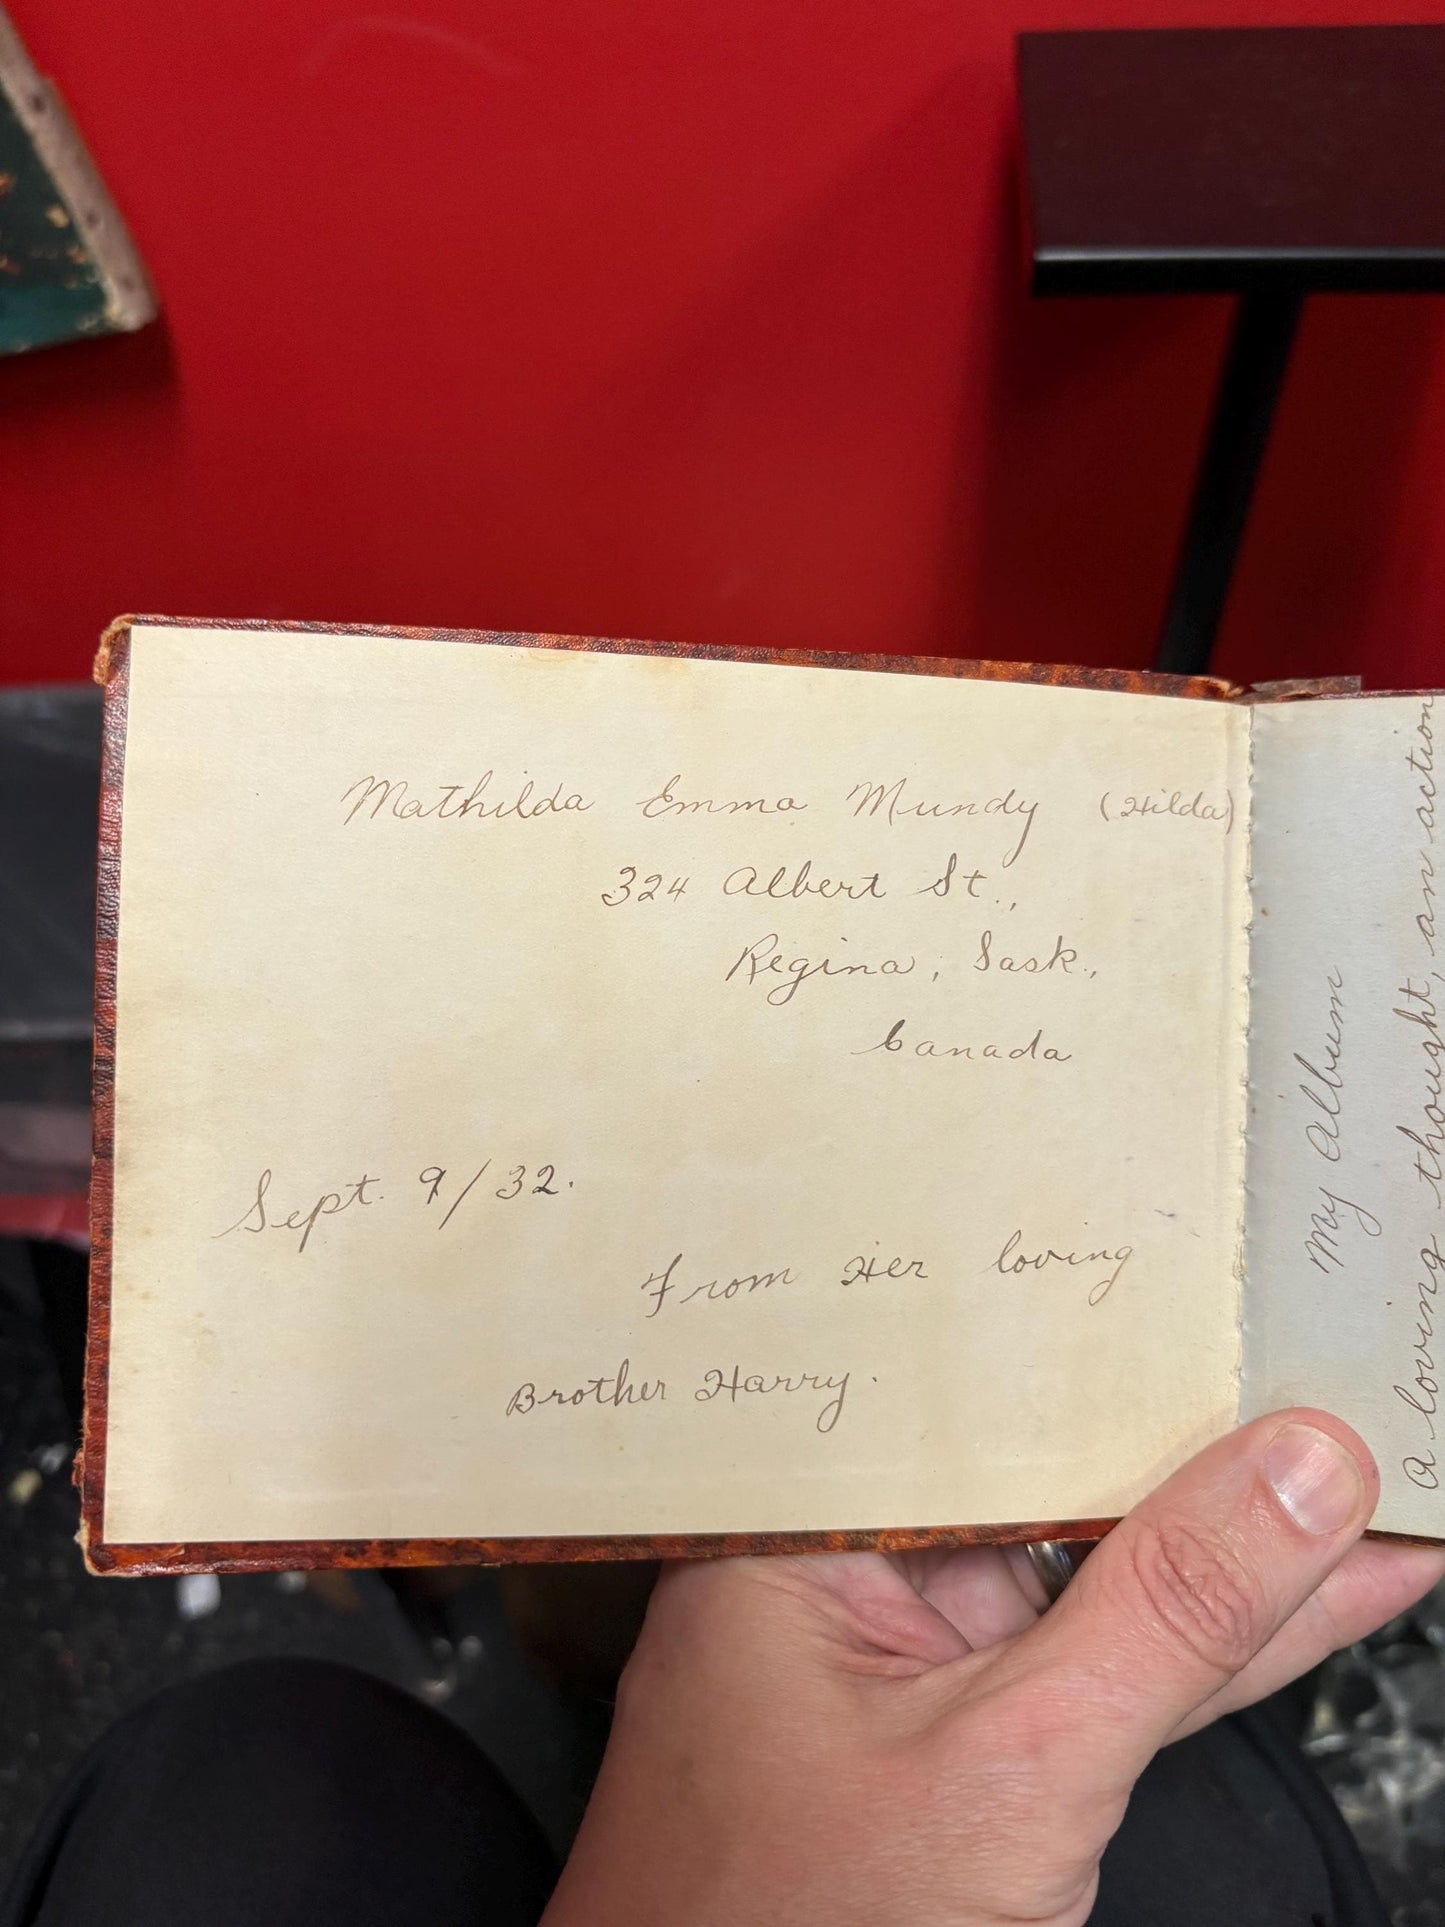 Mathilda Emma Mundy (Hilda)
324 Albert St.,
Regina, Sask.,
Canada
Sept. 9/32.
From Her loving
Brother Harry.
My Album
A loving thought, an action